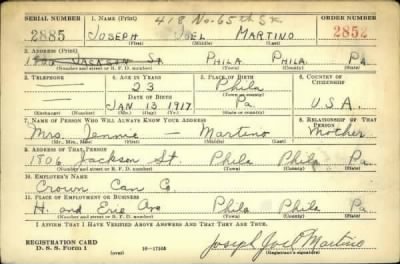 SERIAL NUMBER 1. NAME (Print) 418 No. 65th St. ORDER NUMBER
2885 JOSEPH JOEL MARTINO 2852
(First) (Middle) (Last)
2. ADDRESS (Print)
JACKSON ST. PHILA PHILA PA.
(Number and street or R. F. D. number) (Town) (County) (State)
3. TELEPHONE 4. AGE IN YEARS 5. PLACE OF BIRTH 6. COUNTRY OF CITIZENSHIP
— 23 Phila
DATE OF BIRTH (Town or county)
— JAN 13 1917 Pa. U.S.A.
(Exchange) (Number) (Mo.) (Day) (Yr.) (State or country)
7. NAME OF PERSON WHO WILL ALWAYS KNOW YOUR ADDRESS 8. RELATIONSHIP OF THAT PERSON
Mrs. Jennie — Martino Mother
(Mr., Mrs., Miss) (First) (Middle) (Last)
9. ADDRESS OF THAT PERSON
1806 Jackson St. Phila Phila Pa.
(Number and street or R. F. D. number) (Town) (County) (State)
10. EMPLOYER'S NAME
Crown Can Co
11. PLACE OF EMPLOYMENT OR BUSINESS
H. and Erie Ave Phila Phila Pa
(Number and street or R. F. D. number) (Town) (County) (State)
I AFFIRM THAT I HAVE VERIFIED ABOVE ANSWERS AND THAT THEY ARE TRUE.
REGISTRATION CARD
D. S. S. Form 1 (over) 16—17105 Joseph Joel Martino
(Registrant's signature)